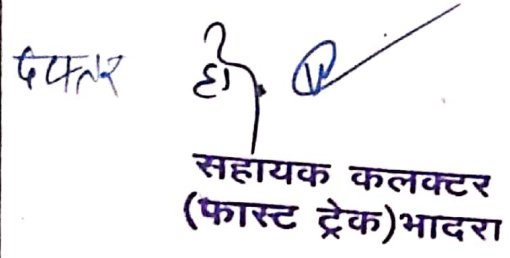 दफ्तर हो.
सहायक कलक्टर
(फास्ट ट्रेक)भादरा